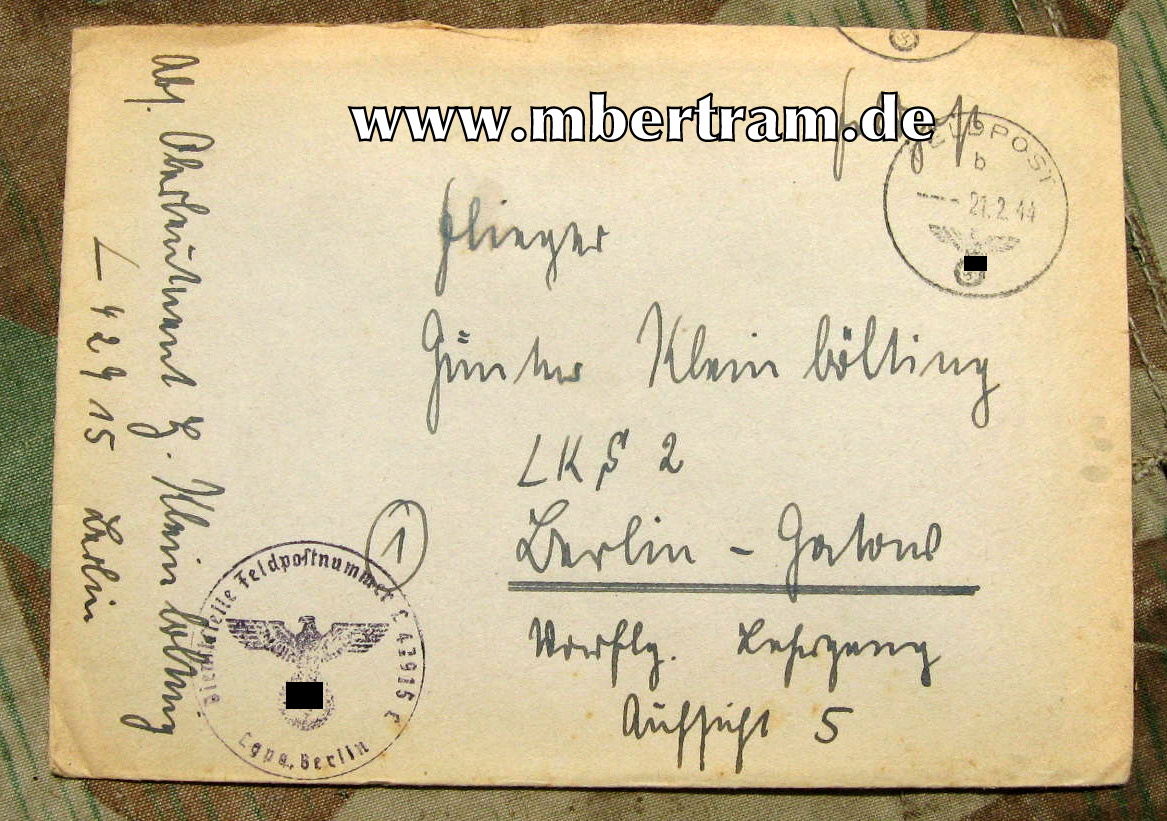 www.mbertram.de
Feldpost
FELDPOST
b
21.2.44
Flieger
Günter Kleinbölting
LKS 2
(1) Berlin - Gatow
Vorflg. Lehrgang
Aufsicht 5
Abs. Oberleutnant G. Kleinbölting
L 42915 Berlin
Dienststelle Feldpostnummer L 42915
Lgpa. Berlin